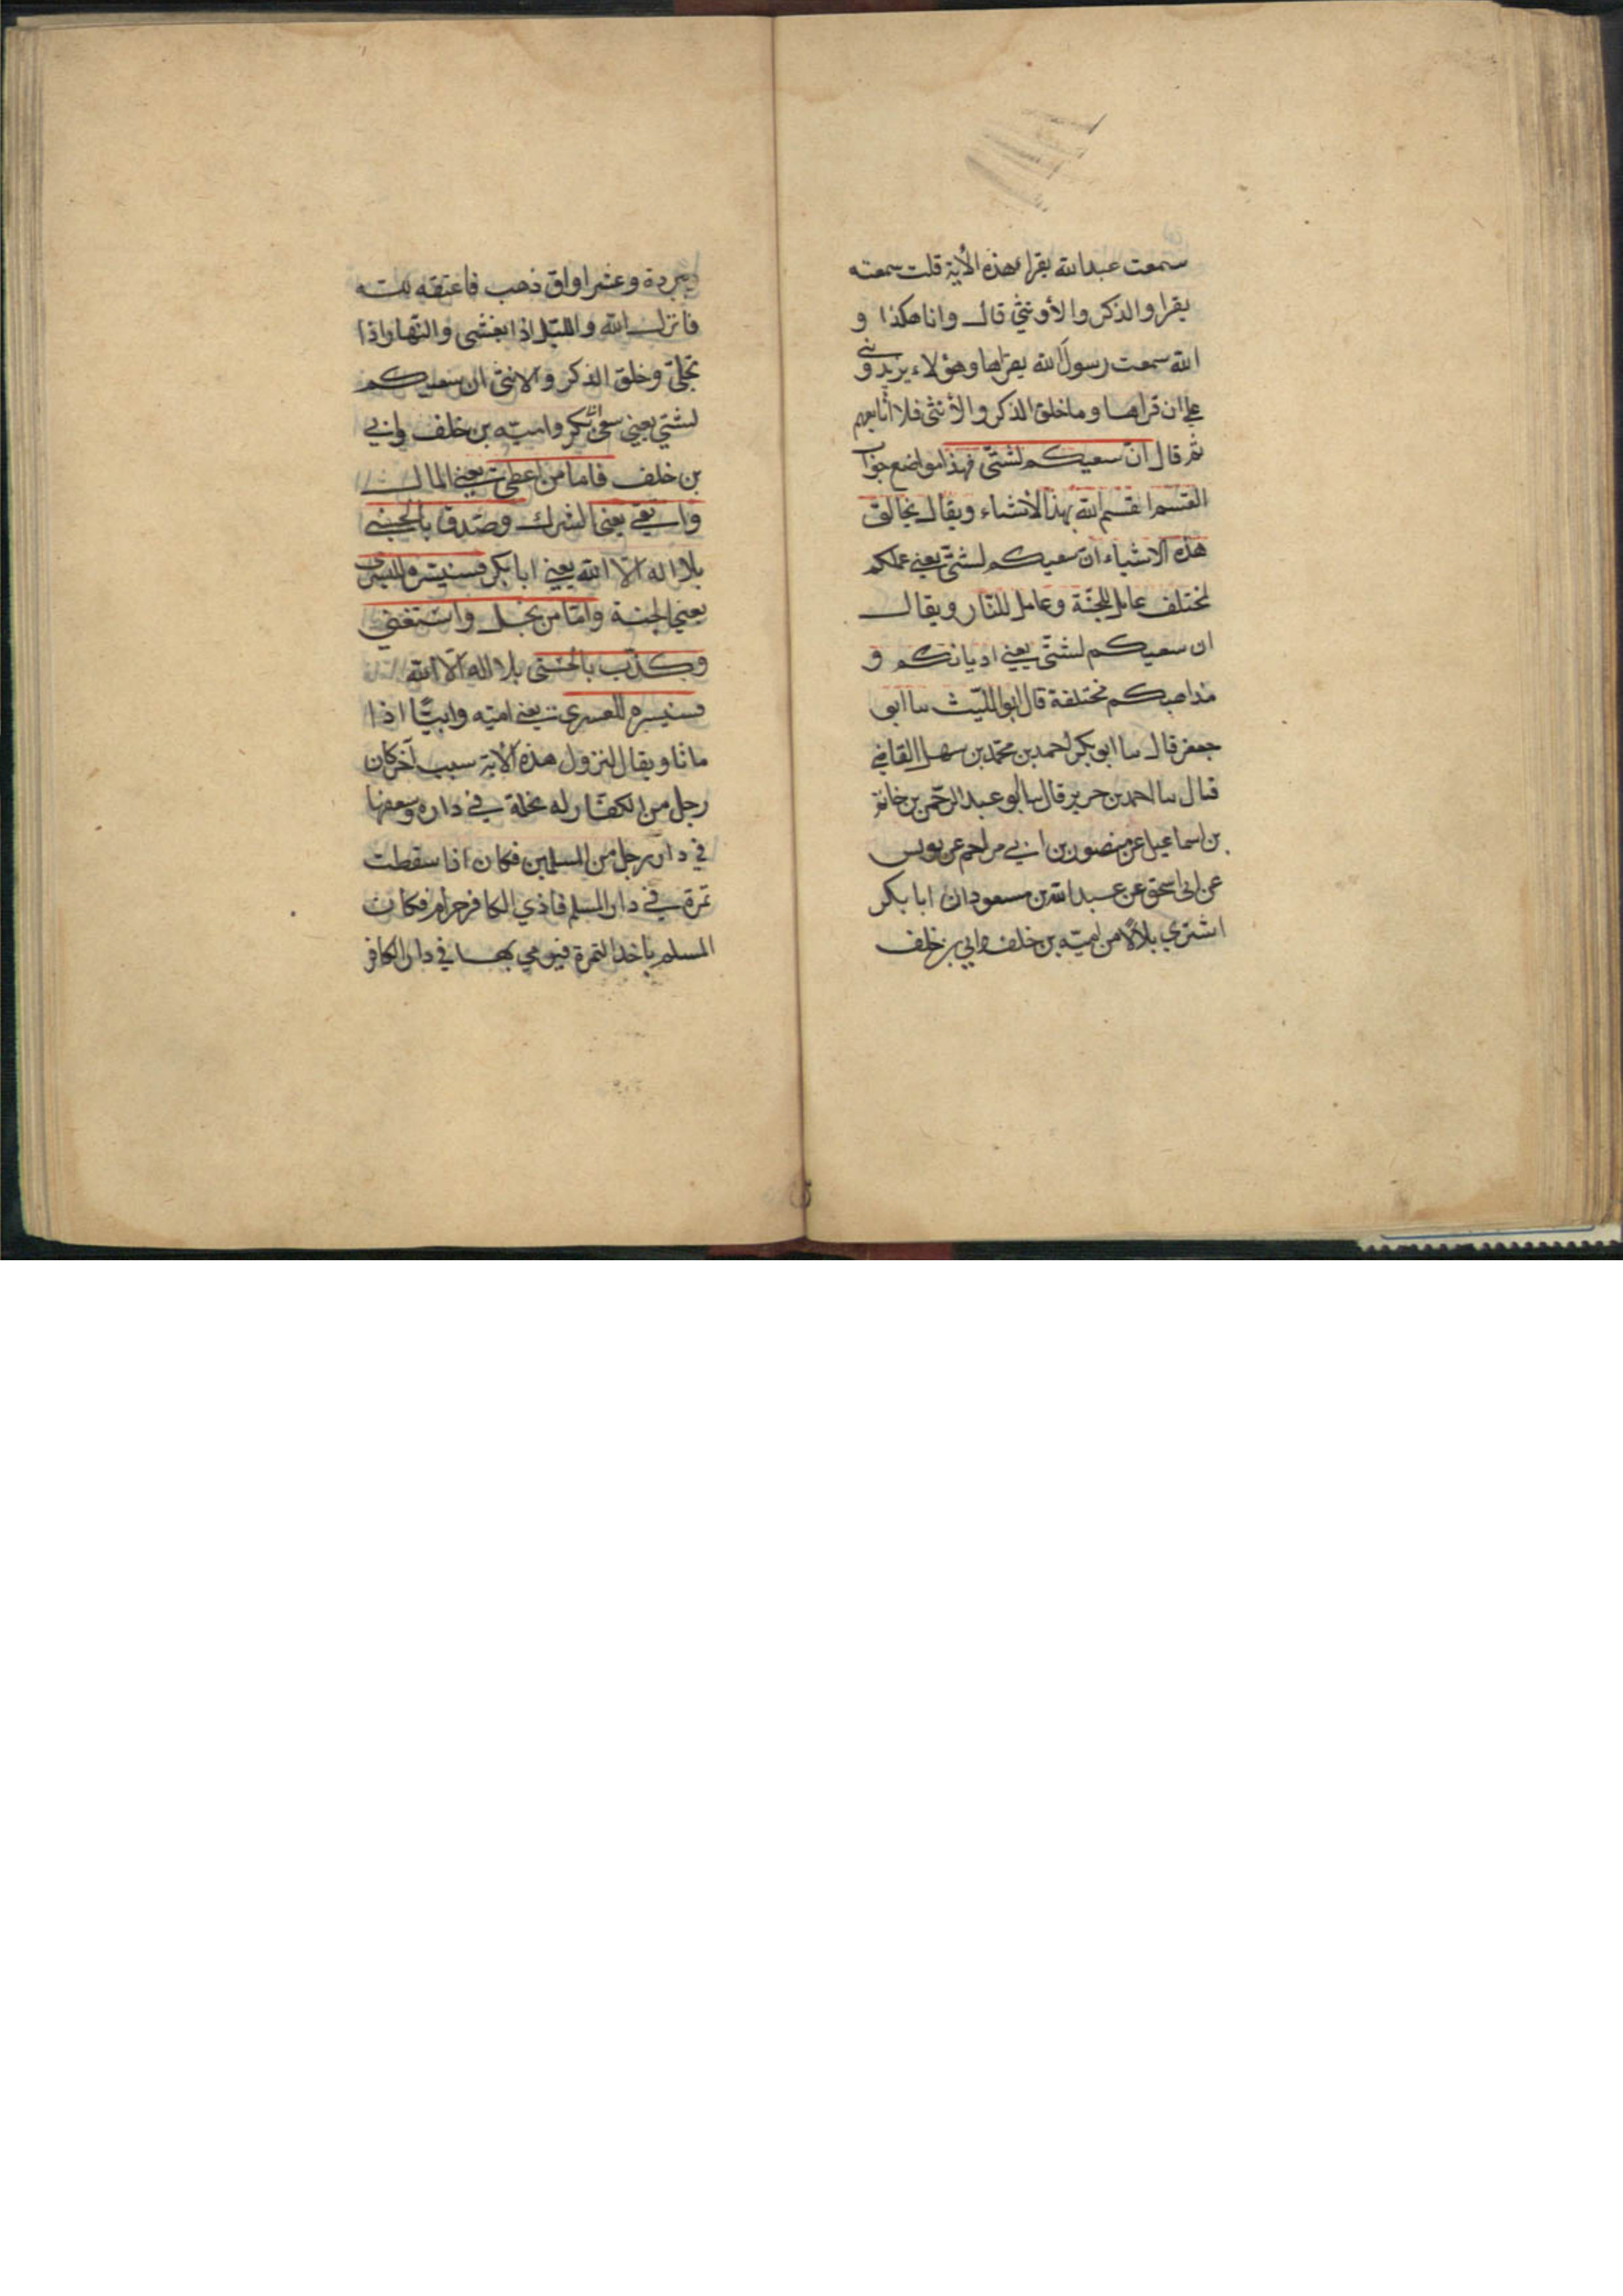 سمعت عبدالله يقرا هذه الأية قلت سمعته
يقرا والذكر والأونثي قال وانا هكذا و
الله سمعت رسول الله يقراها وهؤلاء يريدوني
علي ان قراها وما خلق الذكر والأنثى فلا اتابعهم
ثم قال ان سعيكم لشتى فهذا مواضع جواب
القسم اقسم الله بهذالأشياء ويقال بخالق
هذه الاشياء ان سعيكم لشتى يعني عملكم
لمختلف عامل للجنة وعامل للنار ويقال
ان سعيكم لشتى يعني اديانكم و
مذاهبكم مختلفة قال ابو الليث سا ابو
جعفر قال سا ابو بكر احمد بن محمد بن سهل القاضي
قال سا احمد بن جرير قال سا ابو عبد الرحمن بن
بن اسماعيل عن منصور بن ابي مزاحم عن يونس
عن ابى اسحق عن عبد الله بن مسعود ان ابا بكر
اشتري بلالا من اميّه بن خلف وابي بن خلف
ببردة وعشر اواق ذهب فاعتقه لله
فانزل الله والليل اذا يغشى والنهار اذا
تجلى وخلق الذكر والانثى ان سعيكم
لشتي يعني سعى ابي بكر واميّه بن خلف وابي
بن خلف فاما من اعطى يعني المال
واتقى يعني الشرك وصدق بالحسنى
بلا اله الا الله يعني ابا بكر فسنيسره لليسرى
يعني الجنة واما من بخل واستغني
وكذب بالحسنى بلا اله الا الله
فسنيسره للعسرى يعني اميّه وابيّا اذا
ماتا ويقال لنزول هذه الأية سبب آخر كان
رجل من الكفار له نخلة في داره وسعفها
في دار رجل من المسلمين فكان اذا سقطت
تمرة في دار المسلم فاذي الكافر حرام فكان
المسلم ياخذ التمرة فيرمي بها في دار الكافر